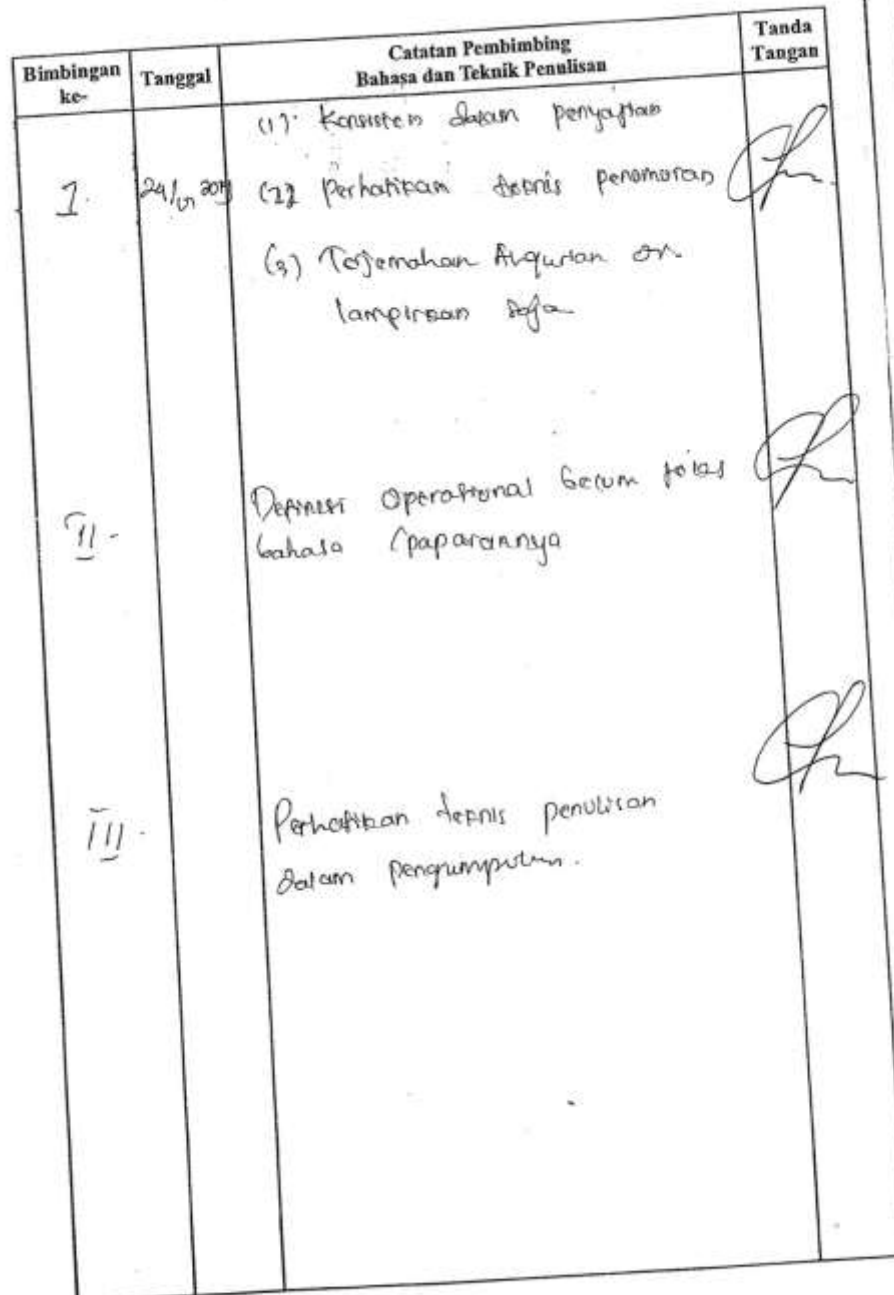 Bimbingan ke-
Tanggal
Catatan Pembimbing
Bahasa dan Teknik Penulisan
Tanda Tangan
(1). Konsisten dalam penyajian
I. 24/ (2) Perhatikan teknis penomoran
(3) Terjemahan Alqur'an di
lampiran saja
II - Definisi Operasional belum jelas
bahasa (paparannya
III - Perhatikan teknis penulisan
dalam pengumpulan.